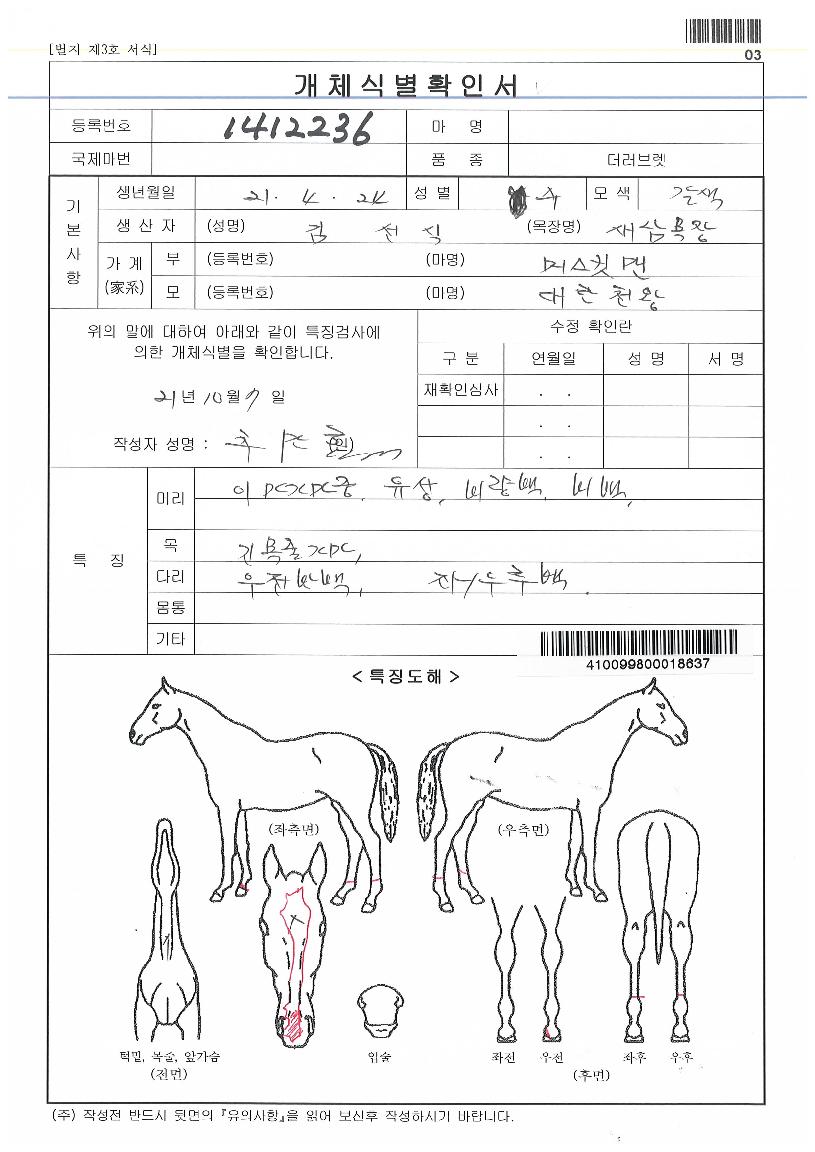 [별지 제3호 서식]
03
개체식별확인서
등록번호 1412236 마 명
국제마번 품 종 더러브렛
기본사항
생년월일 21. 4. 24 성 별 수 모 색 갈색
생 산 자 (성명) 김 선 식 (목장명)
가 계 (家系) 부 (등록번호) (마명) 머스킷맨
모 (등록번호) (마명) 대관천왕
위의 말에 대하여 아래와 같이 특징검사에
의한 개체식별을 확인합니다.
21년 10월 7일
작성자 성명 : (인)
수정 확인란
구 분 연월일 성 명 서 명
재확인심사 . .
. .
. .
특 징
머리 유성, 비량백, 비백,
목
다리 좌/우후백.
몸통
기타
410099800018637
<특징도해>
(좌측면) (우측면)
턱밑, 목줄, 앞가슴 입술 좌전 우전 좌후 우후
(전면) (후면)
(주) 작성전 반드시 뒷면의 『유의사항』을 읽어 보신후 작성하시기 바랍니다.